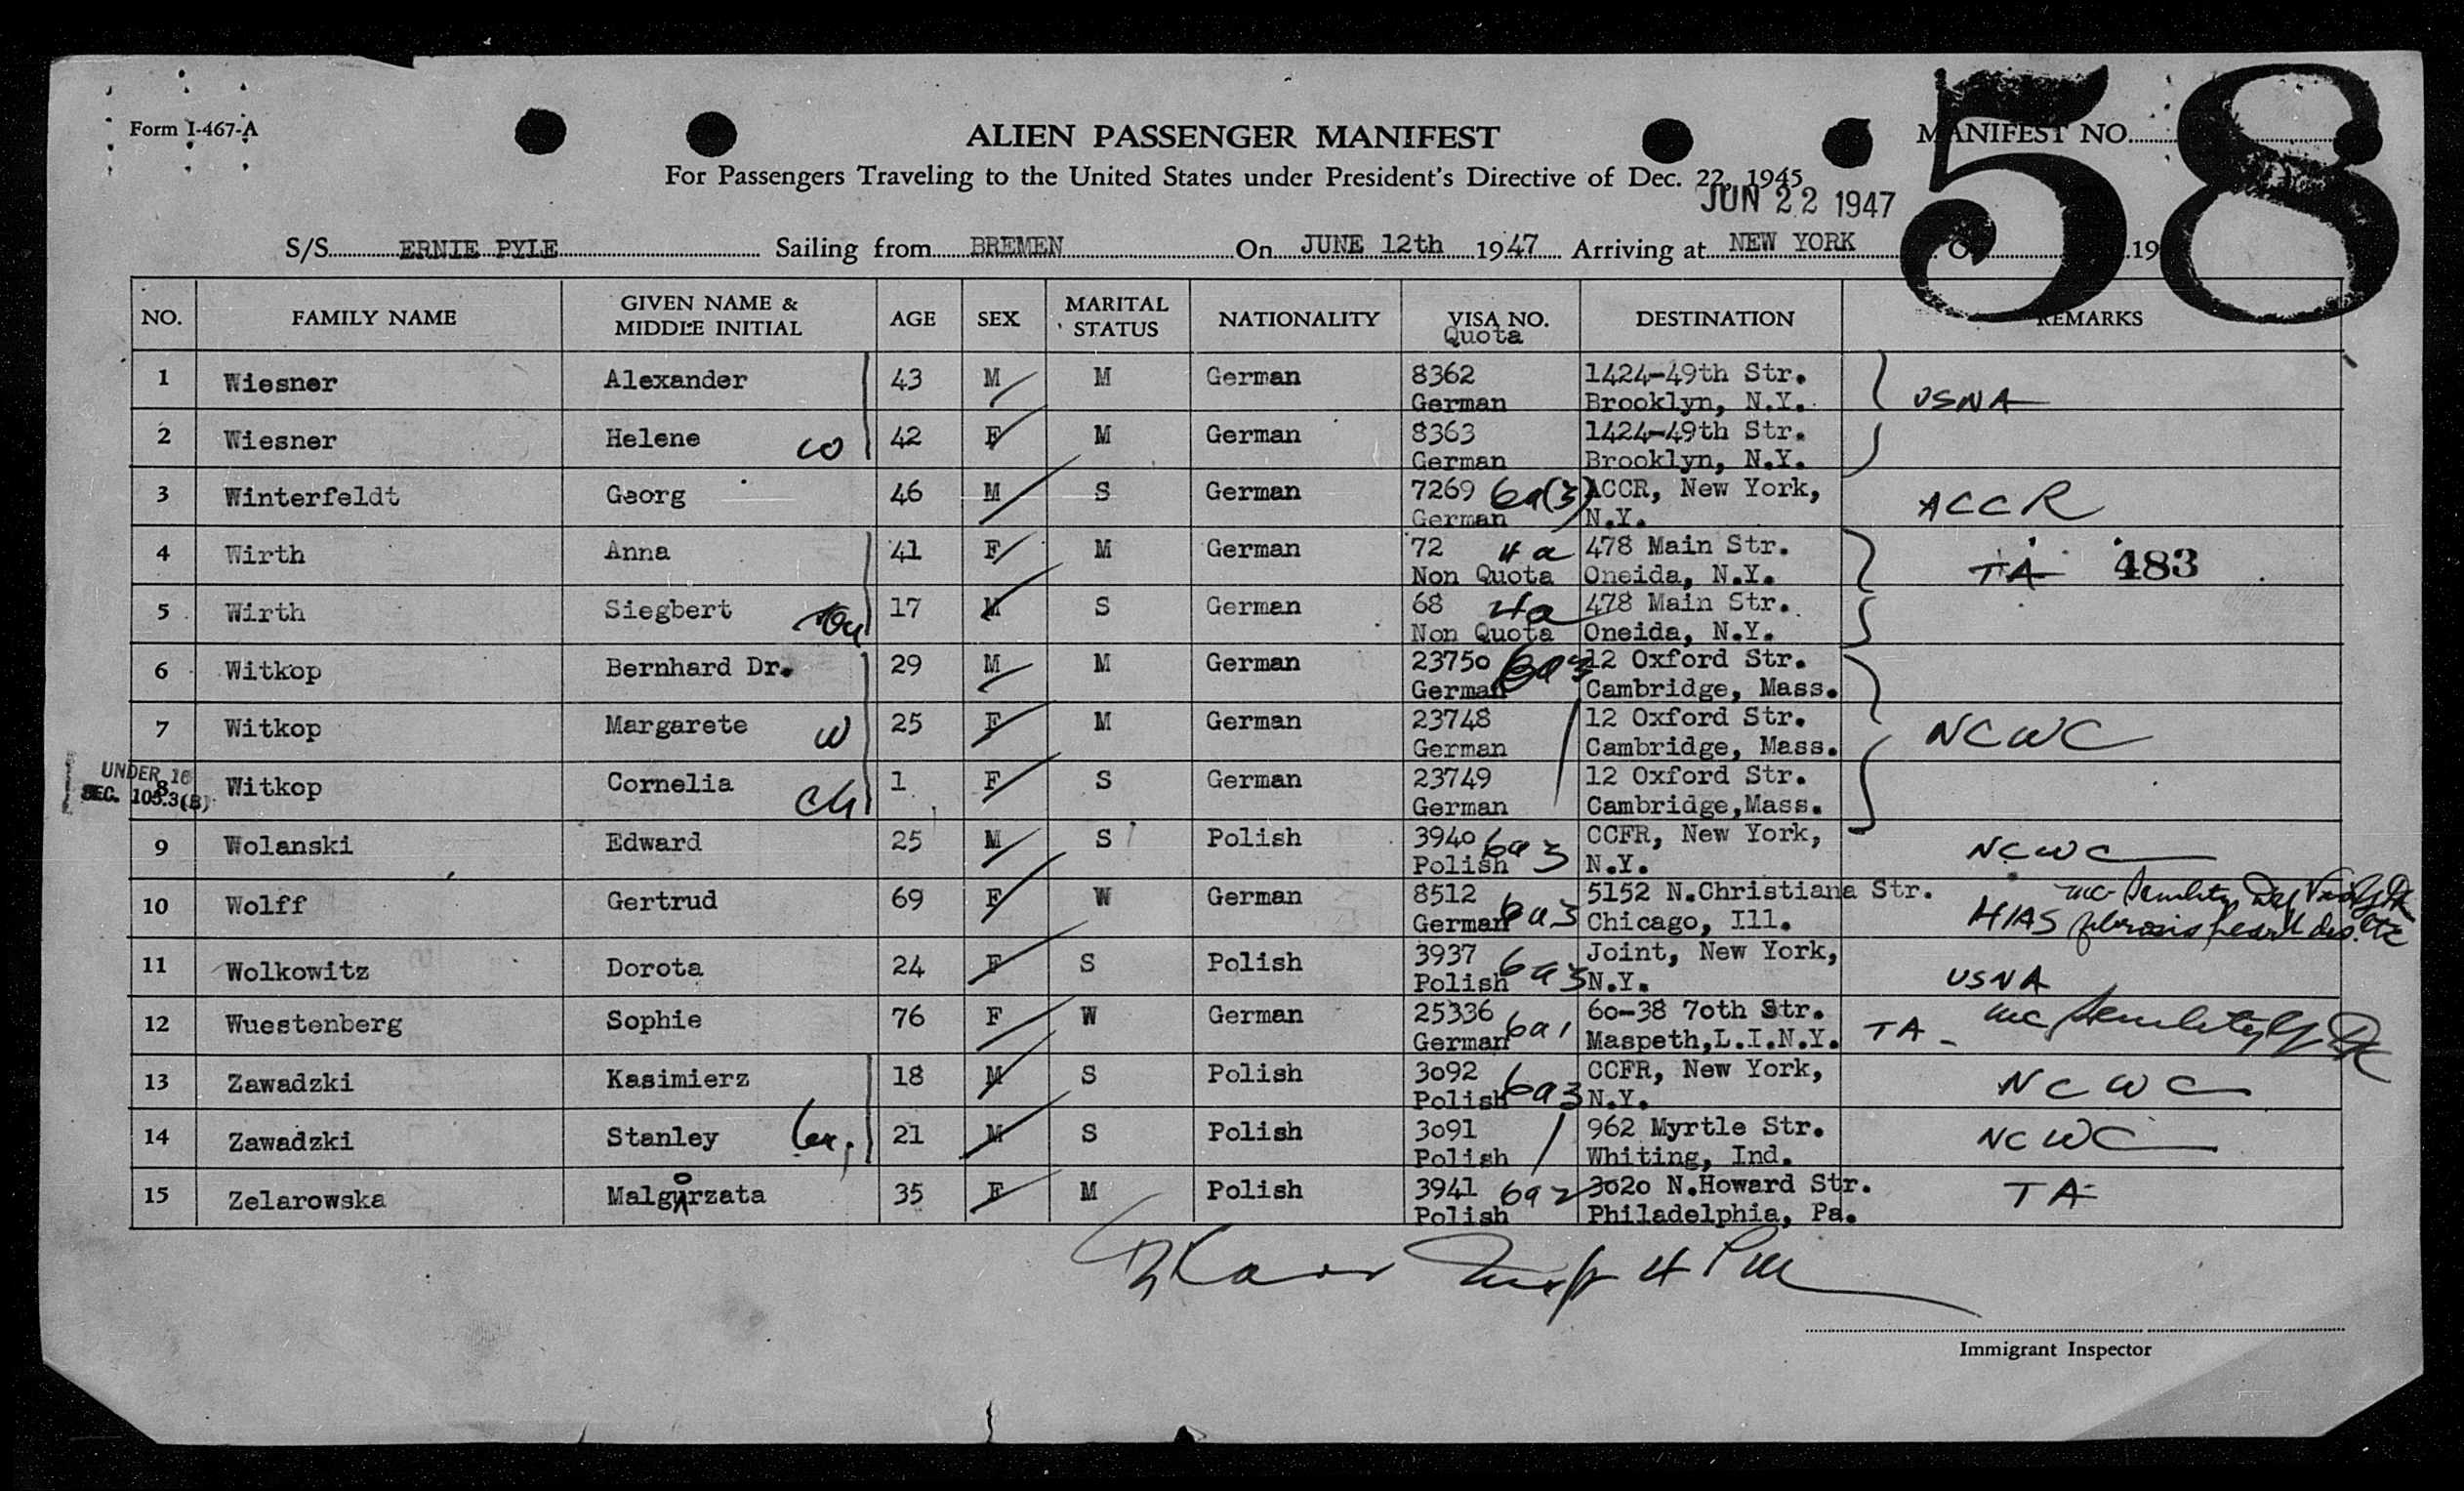 58
Form I-467-A
ALIEN PASSENGER MANIFEST
MANIFEST NO.
For Passengers Traveling to the United States under President's Directive of Dec. 22, 1945
JUN 22 1947
S/S ERNIE PYLE Sailing from BREMEN On JUNE 12th 1947 Arriving at NEW YORK On 19
NO. FAMILY NAME GIVEN NAME & MIDDLE INITIAL AGE SEX MARITAL STATUS NATIONALITY VISA NO. Quota DESTINATION REMARKS
1 Wiesner Alexander 43 M M German 8362 1424-49th Str.
German Brooklyn, N.Y. USNA
2 Wiesner Helene w 42 F M German 8363 1424-49th Str.
German Brooklyn, N.Y.
3 Winterfeldt Georg 46 M S German 7269 6a(3) ACCR, New York,
German N.Y. ACCR
4 Wirth Anna 41 F M German 72 4a 478 Main Str.
Non Quota Oneida, N.Y. TA 483
5 Wirth Siegbert son 17 M S German 68 4a 478 Main Str.
Non Quota Oneida, N.Y.
6 Witkop Bernhard Dr. 29 M M German 23750 6a3 12 Oxford Str.
German Cambridge, Mass.
7 Witkop Margarete w 25 F M German 23748 12 Oxford Str.
German Cambridge, Mass. NCWC
UNDER 16
SEC. 105.3(B)
8 Witkop Cornelia ch 1 F S German 23749 12 Oxford Str.
German Cambridge,Mass.
9 Wolanski Edward 25 M S Polish 3940 6a3 CCFR, New York,
Polish N.Y. NCWC
10 Wolff Gertrud 69 F W German 8512 6a3 5152 N.Christiana Str.
German Chicago, Ill. HIAS
11 Wolkowitz Dorota 24 F S Polish 3937 6a3 Joint, New York,
Polish N.Y. USNA
12 Wuestenberg Sophie 76 F W German 25336 6a1 60-38 70th Str.
German Maspeth,L.I.N.Y. TA -
13 Zawadzki Kasimierz 18 M S Polish 3092 6a3 CCFR, New York,
Polish N.Y. NCWC
14 Zawadzki Stanley br. 21 M S Polish 3091 962 Myrtle Str.
Polish Whiting, Ind. NCWC
15 Zelarowska Malgorzata 35 F M Polish 3941 6a2 3020 N.Howard Str.
Polish Philadelphia, Pa. TA
Immigrant Inspector